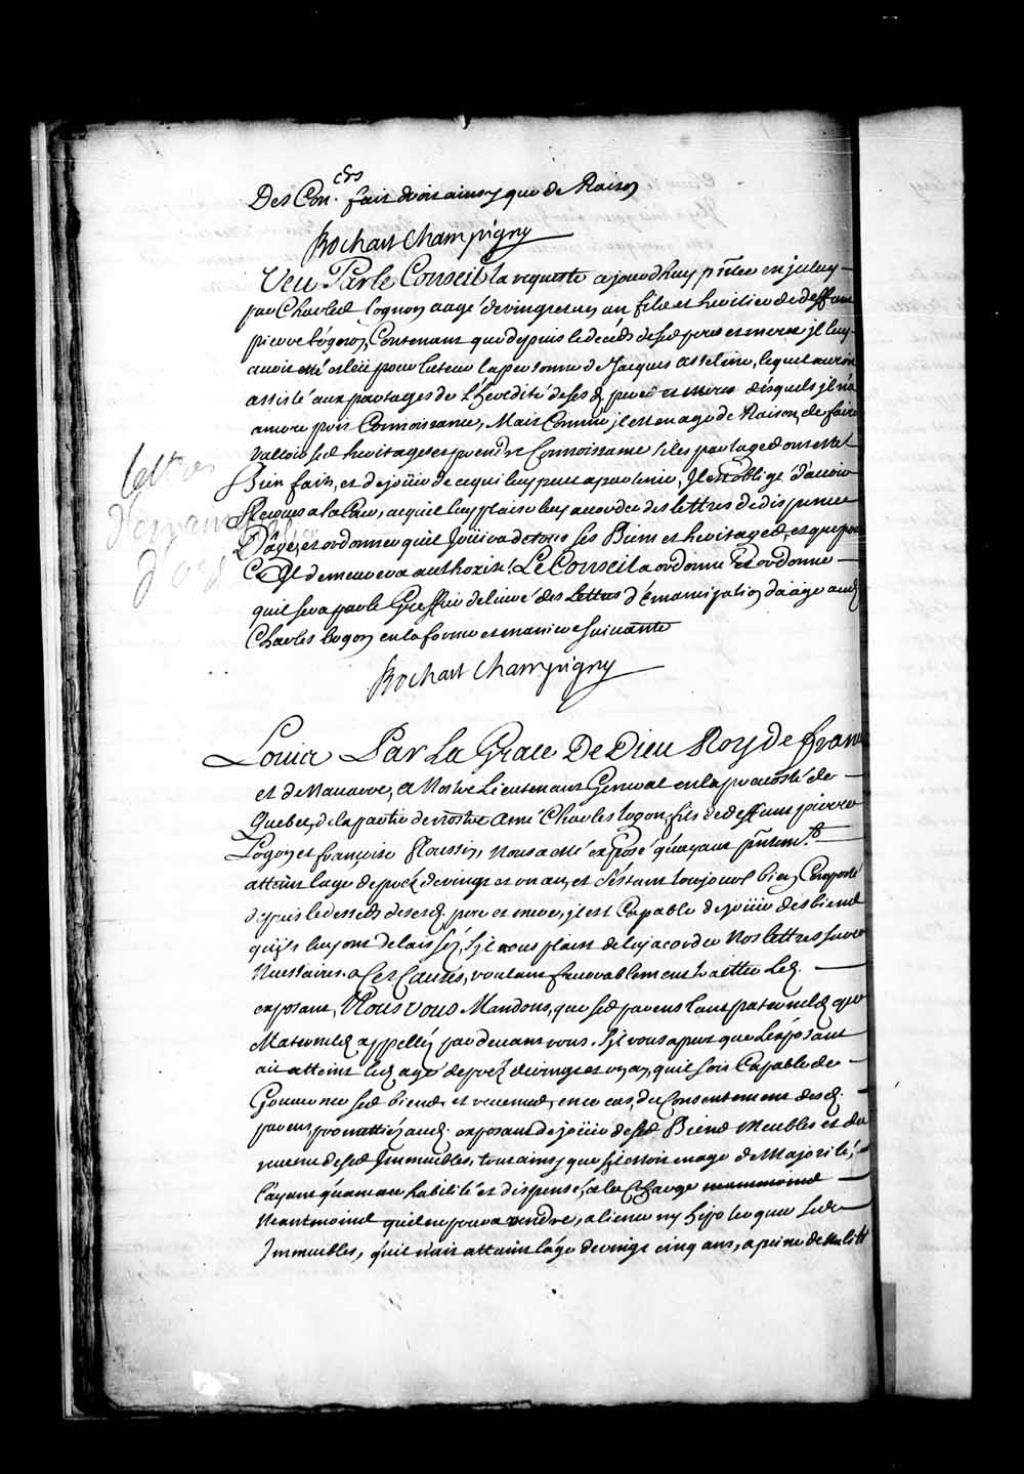 Des Con.ers fait droit ainsy que de Raison
Rochart Champigny
Veu Par le Conseil la requeste ajourdhuy p̃ntée en iceluy
par Charles Cognon aagé de vingt un an fils et heritier de deffunt
pierre Cognon, Contenant que depuis le deceds de ses peres et mere jl luy
auroit esté esleü pour tuteur la personne de Jacques Asseline, lequel auroit
assisté aux partages de l'heredité de sesd. pere et mere desquels jl n'a
aucune Connoissance, Mais Comme jl est en age de Raison, de faire
Valloir ses heritages et prendre Connoissance si les partages ont esté
Bien faits, et de joüir de ce qui luy peut apartenir, Jl est obligé d'auoir
Recours a la Cour, a ce qu'il luy plaise luy accorder des lettres de dispence
D'âge, et ordonner quil Joüira de tous ses Biens et heritages, et que pour
Ce Il demeurera authorisé. Le Conseil a ordonné Et ordonne
quil sera par le Greffier deliuré des Lettres d'émancipation d'aage aud.
Charles Cognon en la forme et maniere suiuante
Rochart Champigny
lettres
d'emancipation
d'age
Louis Par La Grace De Dieu Roy de france
et de Nauarre, A Nostre Lieutenant General en la preuosté de
Quebec, de la partie de nostre amé Charles Cognon, fils de deffunt pierre
Cognon et françoise Roussin, Nous a esté exposé qu'ayant p̃ntemt.
atteint l'age de prez de vingt et un an, et s'estant toujours bien Comporté
depuis le deceds de sesd. pere et mere, jl est Capable de joüir des biens
qu'ils luy ont delaissez, s'jl nous plaist de luy accorder Nos lettres sur ce
Necessaires. A Ces Causes, voulant fauorablement traitter led.
exposant, Nous vous Mandons, que ses parens tant paternels que
Maternels appellez par deuant vous. S'jl vous apert que L'exposant
ait atteint led. age de prez de vingt et un an, quil soit Capable de
Gouuerner ses biens et reuenus, en ce cas, du Consentement desd.
parens, promettiez aud. exposant de joüir de ses Biens Meubles et du
reuenu de ses Jmmeubles, tout ainsy que s'jl estoit en age de Majorité,
l'ayant quant a ce habilité et dispensé, a la Charge neantmoins
Neantmoins quil ne poura vendre, aliener ny hipotequer sesd.
Jmmeubles, qu'il n'ait atteint l'age de vingt cinq ans, a peine de nullité